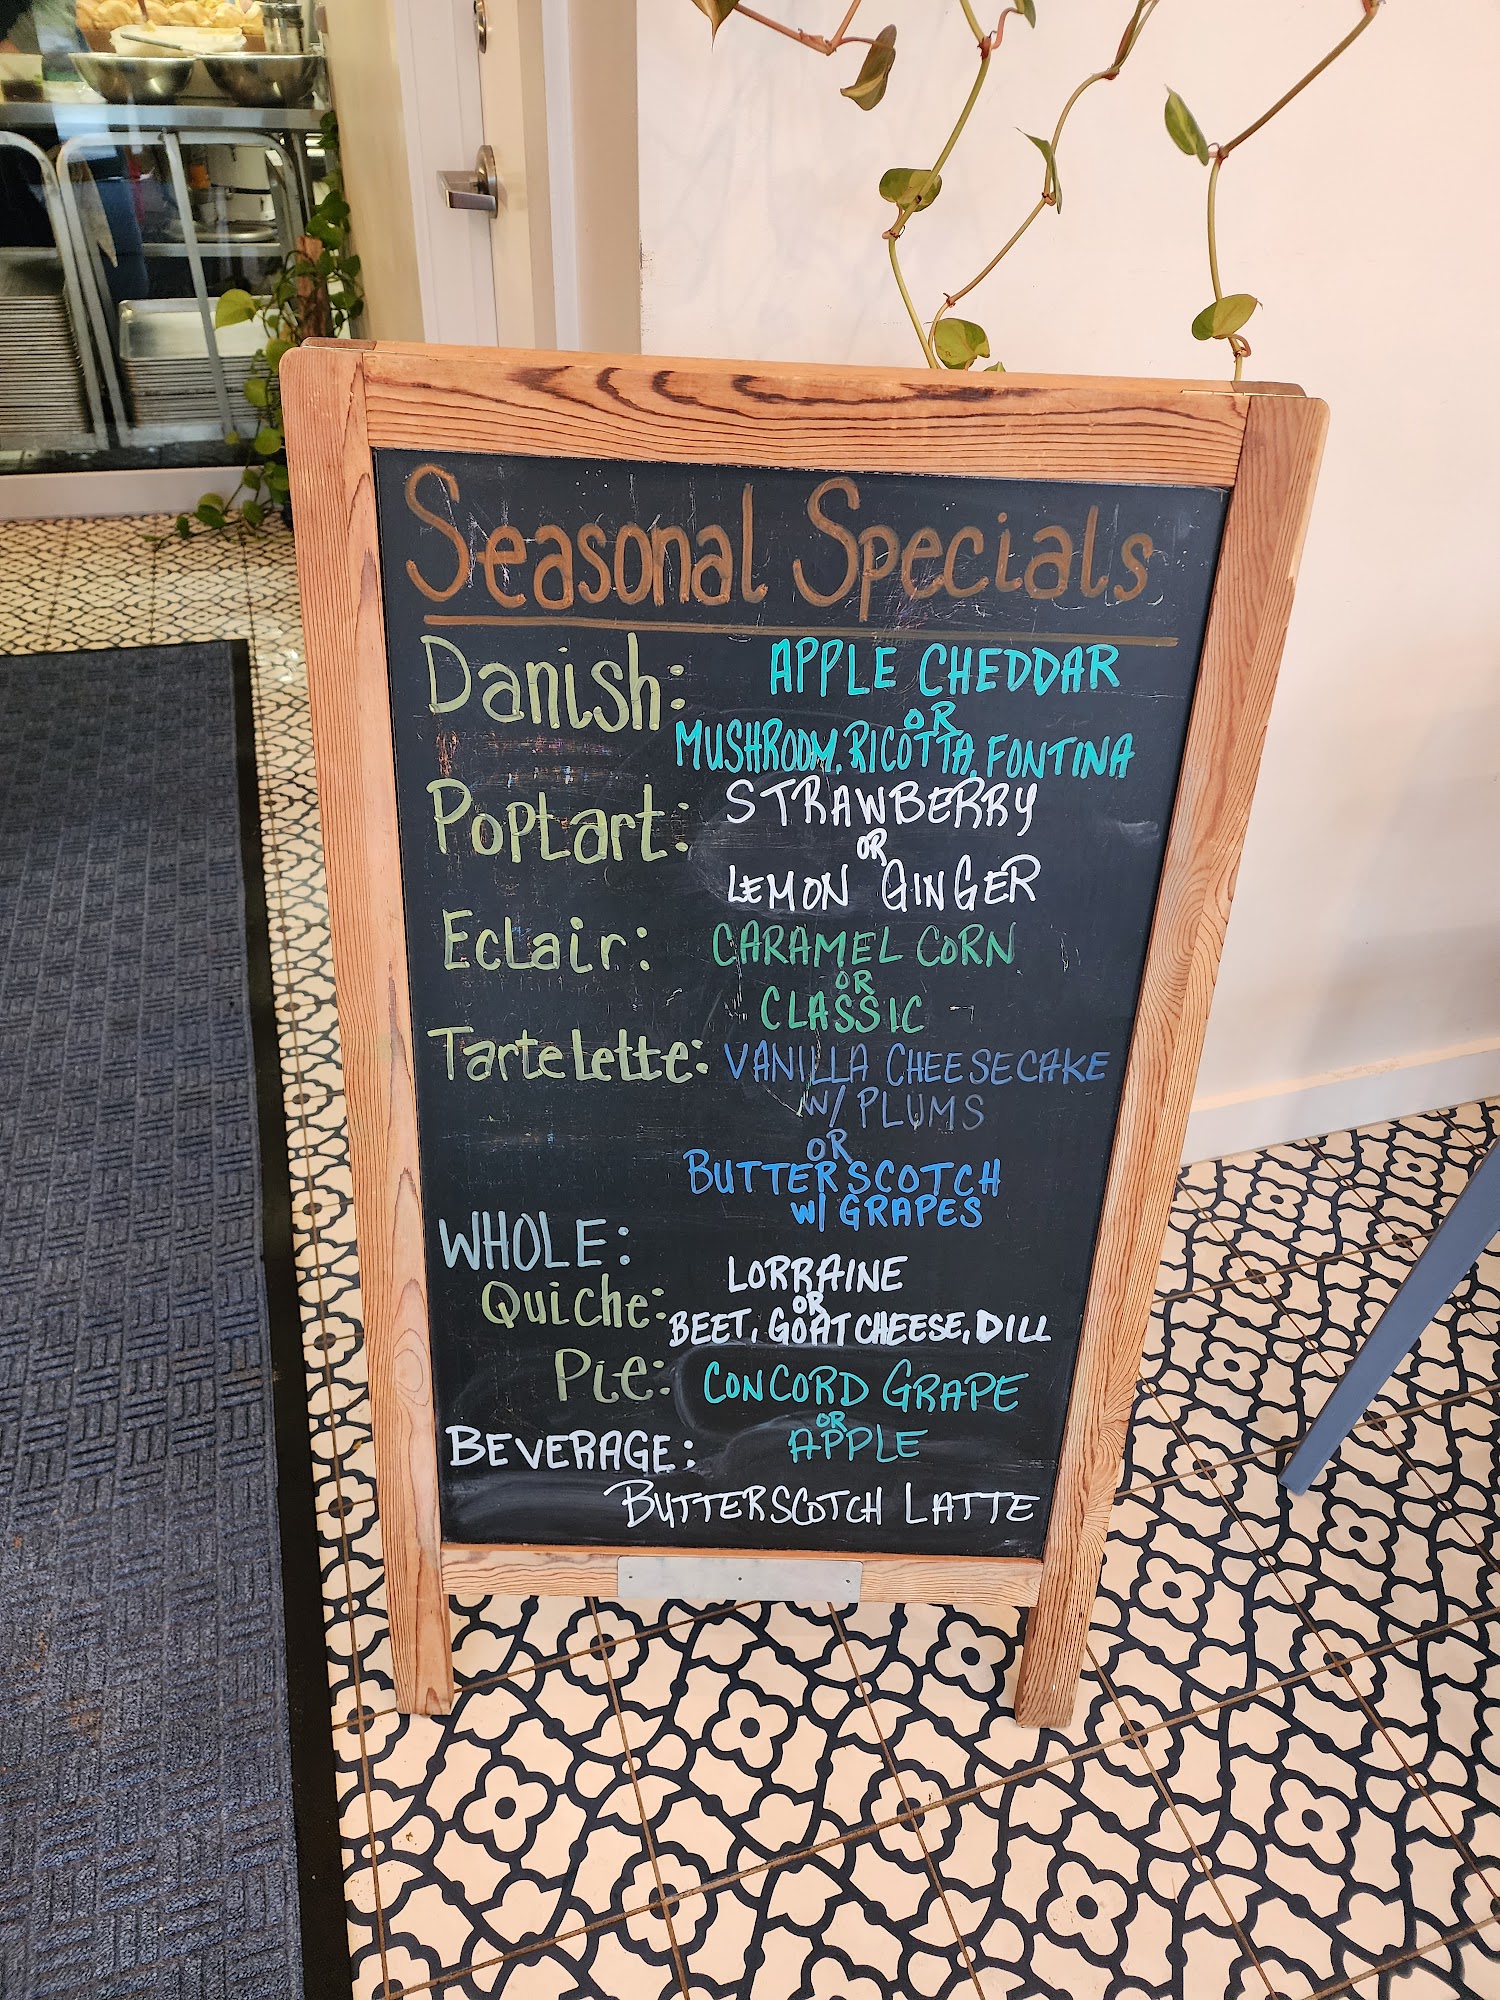 Seasonal Specials
Danish: APPLE CHEDDAR
OR
MUSHROOM, RICOTTA, FONTINA
Poptart: STRAWBERRY
OR
LEMON GINGER
Eclair: CARAMEL CORN
OR
CLASSIC
Tartelette: VANILLA CHEESECAKE
W/ PLUMS
OR
BUTTERSCOTCH
W/ GRAPES
WHOLE:
Quiche: LORRAINE
OR
BEET, GOAT CHEESE, DILL
Pie: CONCORD GRAPE
OR
APPLE
BEVERAGE:
BUTTERSCOTCH LATTE